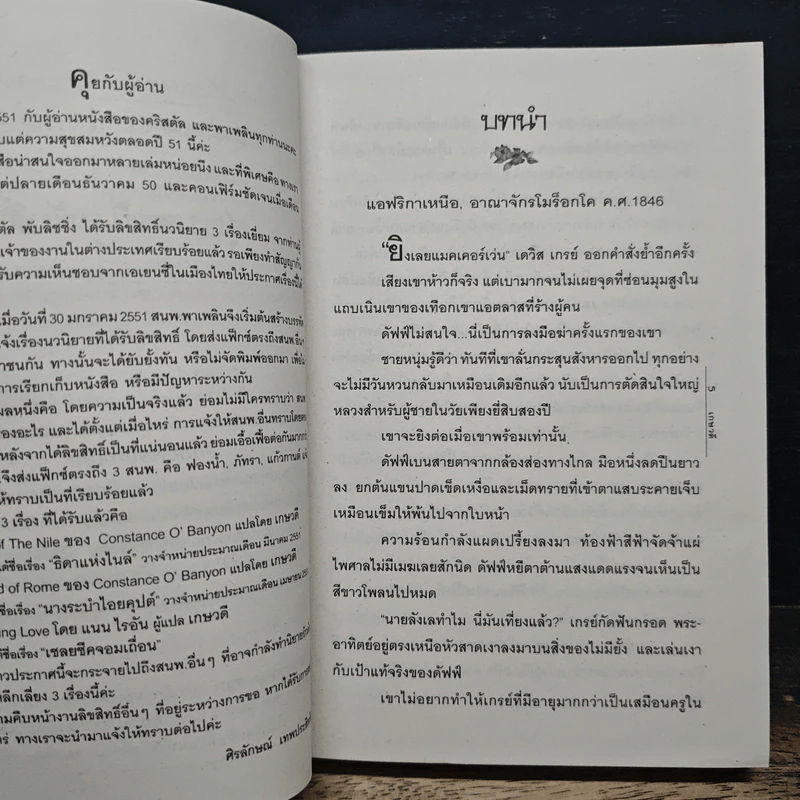 คุยกับผู้อ่าน
551 กับผู้อ่านหนังสือของคริสตัล และพาเพลินทุกท่านนะคะ
บแต่ความสุขสมหวังตลอดปี 51 นี้ค่ะ
สือน่าสนใจออกมาหลายเล่มหน่อยนึง และที่พิเศษคือ ทางเรา
ต่ปลายเดือนธันวาคม 50 และคอนเฟิร์มชัดเจนเมื่อเดือน
ตัล พับลิชชิ่ง ได้รับลิขสิทธิ์นวนิยาย 3 เรื่องเยี่ยม จากท่านผู้
เจ้าของงานในต่างประเทศเรียบร้อยแล้ว รอเพียงทำสัญญากัน
รับความเห็นชอบจากเอเยนซี่ในเมืองไทยให้ประกาศเรื่องนี้ได้
เมื่อวันที่ 30 มกราคม 2551 สนพ.พาเพลินจึงเริ่มต้นสร้างบรรทัด
แจ้งเรื่องนวนิยายที่ได้รับลิขสิทธิ์ โดยส่งแฟ็กซ์ตรงถึง สนพ.อื่นๆ
าชนกัน ทางนั้นจะได้ยับยั้งทัน หรือไม่จัดพิมพ์ออกมา เพื่อไม่
การเรียกเก็บหนังสือ หรือมีปัญหาระหว่างกัน
ผลหนึ่งคือ โดยความเป็นจริงแล้ว ย่อมไม่มีใครทราบว่า สนพ
องอะไร และได้ตั้งแต่เมื่อไหร่ การแจ้งให้สนพ.อื่นทราบโดยตรง
หลังจากได้ลิขสิทธิ์เป็นที่แน่นอนแล้ว ย่อมเอื้อเฟื้อต่อกันมากกว่า
จึงส่งแฟ็กซ์ตรงถึง 3 สนพ. คือ ฟองน้ำ, ภัทรา, แก้วกานต์
ห้ทราบเป็นที่เรียบร้อยแล้ว
3 เรื่อง ที่ได้รับแล้วคือ
of The Nile ของ Constance O' Banyon แปลโดย เกษวดี
ต้ชื่อเรื่อง "ธิดาแห่งไนล์" วางจำหน่ายประมาณเดือน มีนาคม 2551
d of Rome ของ Constance O' Banyon แปลโดย เกษวดี
ชื่อเรื่อง "นางระบำไอยคุปต์" วางจำหน่ายประมาณเดือน เมษายน 2551
ing Love โดย แนน ไรอัน ผู้แปล เกษวดี
ชื่อเรื่อง "เชลยชีคจอมเถื่อน"
าวประกาศนี้จะกระจายไปถึงสนพ.อื่นๆ ที่อาจกำลังทำนิยาย
หลีกเลี่ยง 3 เรื่องนี้ค่ะ
ามคืบหน้างานลิขสิทธิ์อื่นๆ ที่อยู่ระหว่างการขอ หากได้รับการ
ร่ ทางเราจะนำมาแจ้งให้ทราบต่อไปค่ะ
ศิรลักษณ์ เทพประสิทธิ์
บทนำ
แอฟริกาเหนือ, อาณาจักรโมร็อกโค ค.ศ.1846
"ยิงเลยแมคเคอร์เว่น" เดวิส เกรย์ ออกคำสั่งย้ำอีกครั้ง
เสียงเขาห้าวก็จริง แต่เบามากจนไม่เผยจุดที่ซ่อนมุมสูงใน
แถบเนินเขาของเทือกเขาแอตลาสที่ร้างผู้คน
ดัฟฟ์ไม่สนใจ...นี่เป็นการลงมือฆ่าครั้งแรกของเขา
ชายหนุ่มรู้ดีว่า ทันทีที่เขาลั่นกระสุนสังหารออกไป ทุกอย่าง
จะไม่มีวันหวนกลับมาเหมือนเดิมอีกแล้ว นับเป็นการตัดสินใจใหญ่
หลวงสำหรับผู้ชายในวัยเพียงยี่สิบสองปี
เขาจะยิงต่อเมื่อเขาพร้อมเท่านั้น
ดัฟฟ์เบนสายตาจากกล้องส่องทางไกล มือหนึ่งลดปืนยาว
ลง ยกต้นแขนปาดเช็ดเหงื่อและเม็ดทรายที่เข้าตาแสบระคายเจ็บ
เหมือนเข็มให้พ้นไปจากใบหน้า
ความร้อนกำลังแผดเปรี้ยงลงมา ท้องฟ้าสีฟ้าจัดจ้าแผ่
ไพศาลไม่มีเมฆเลยสักนิด ดัฟฟ์หยีตาต้านแสงแดดแรงจนเห็นเป็น
สีขาวโพลนไปหมด
"นายลังเลทำไม นี่มันเที่ยงแล้ว?" เกรย์กัดฟันกรอด พระ-
อาทิตย์อยู่ตรงเหนือหัวสาดเงาลงมาบนสิ่งของไม่มียั้ง และเล่นเงา
กับเป้าแท้จริงของดัฟฟ์
เขาไม่อยากทำให้เกรย์ที่มีอายุมากกว่าเป็นเสมือนครูใน
5
เกษวดี